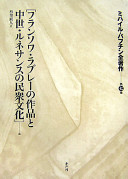 ミハイル・バフチン全著作
第
巻
［フランソワ・ラブレーの作品と
中世・ルネサンスの民衆文化］
水声社